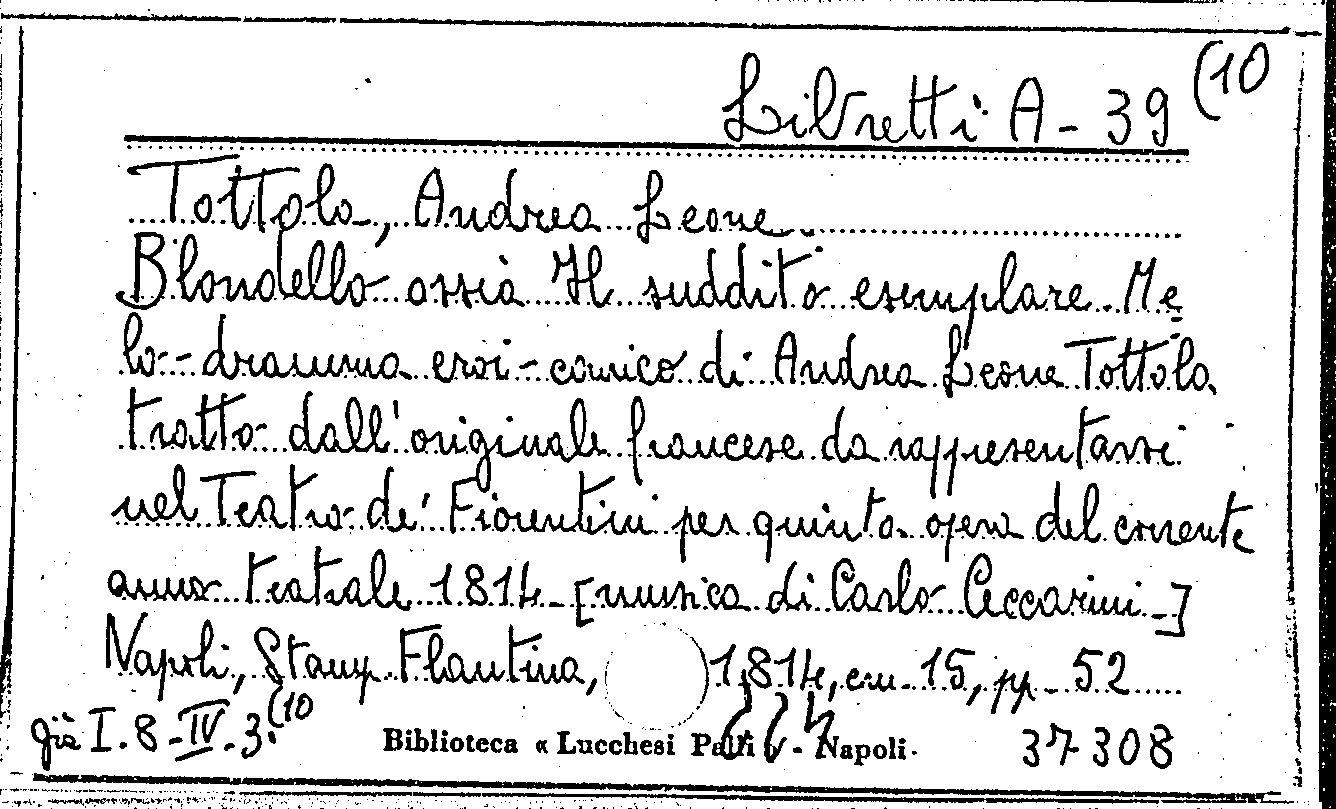 Libretti A - 39 (10
Tottola, Andrea Leone.
Blondello ossia Il suddito esemplare. Me
lo-dramma eroi-comico di Andrea Leone Tottola
tratto dall'originale francese da rappresentarsi
nel Teatro de' Fiorentini per quinta opera del corrente
anno teatrale 1814 - [musica di Carlo Ceccarini -]
Napoli, Stamp. Flautina, 1814, cm. 15, pp. 52
già I. 8 - IV. 3. (10
Biblioteca « Lucchesi Palli » - Napoli.
37308